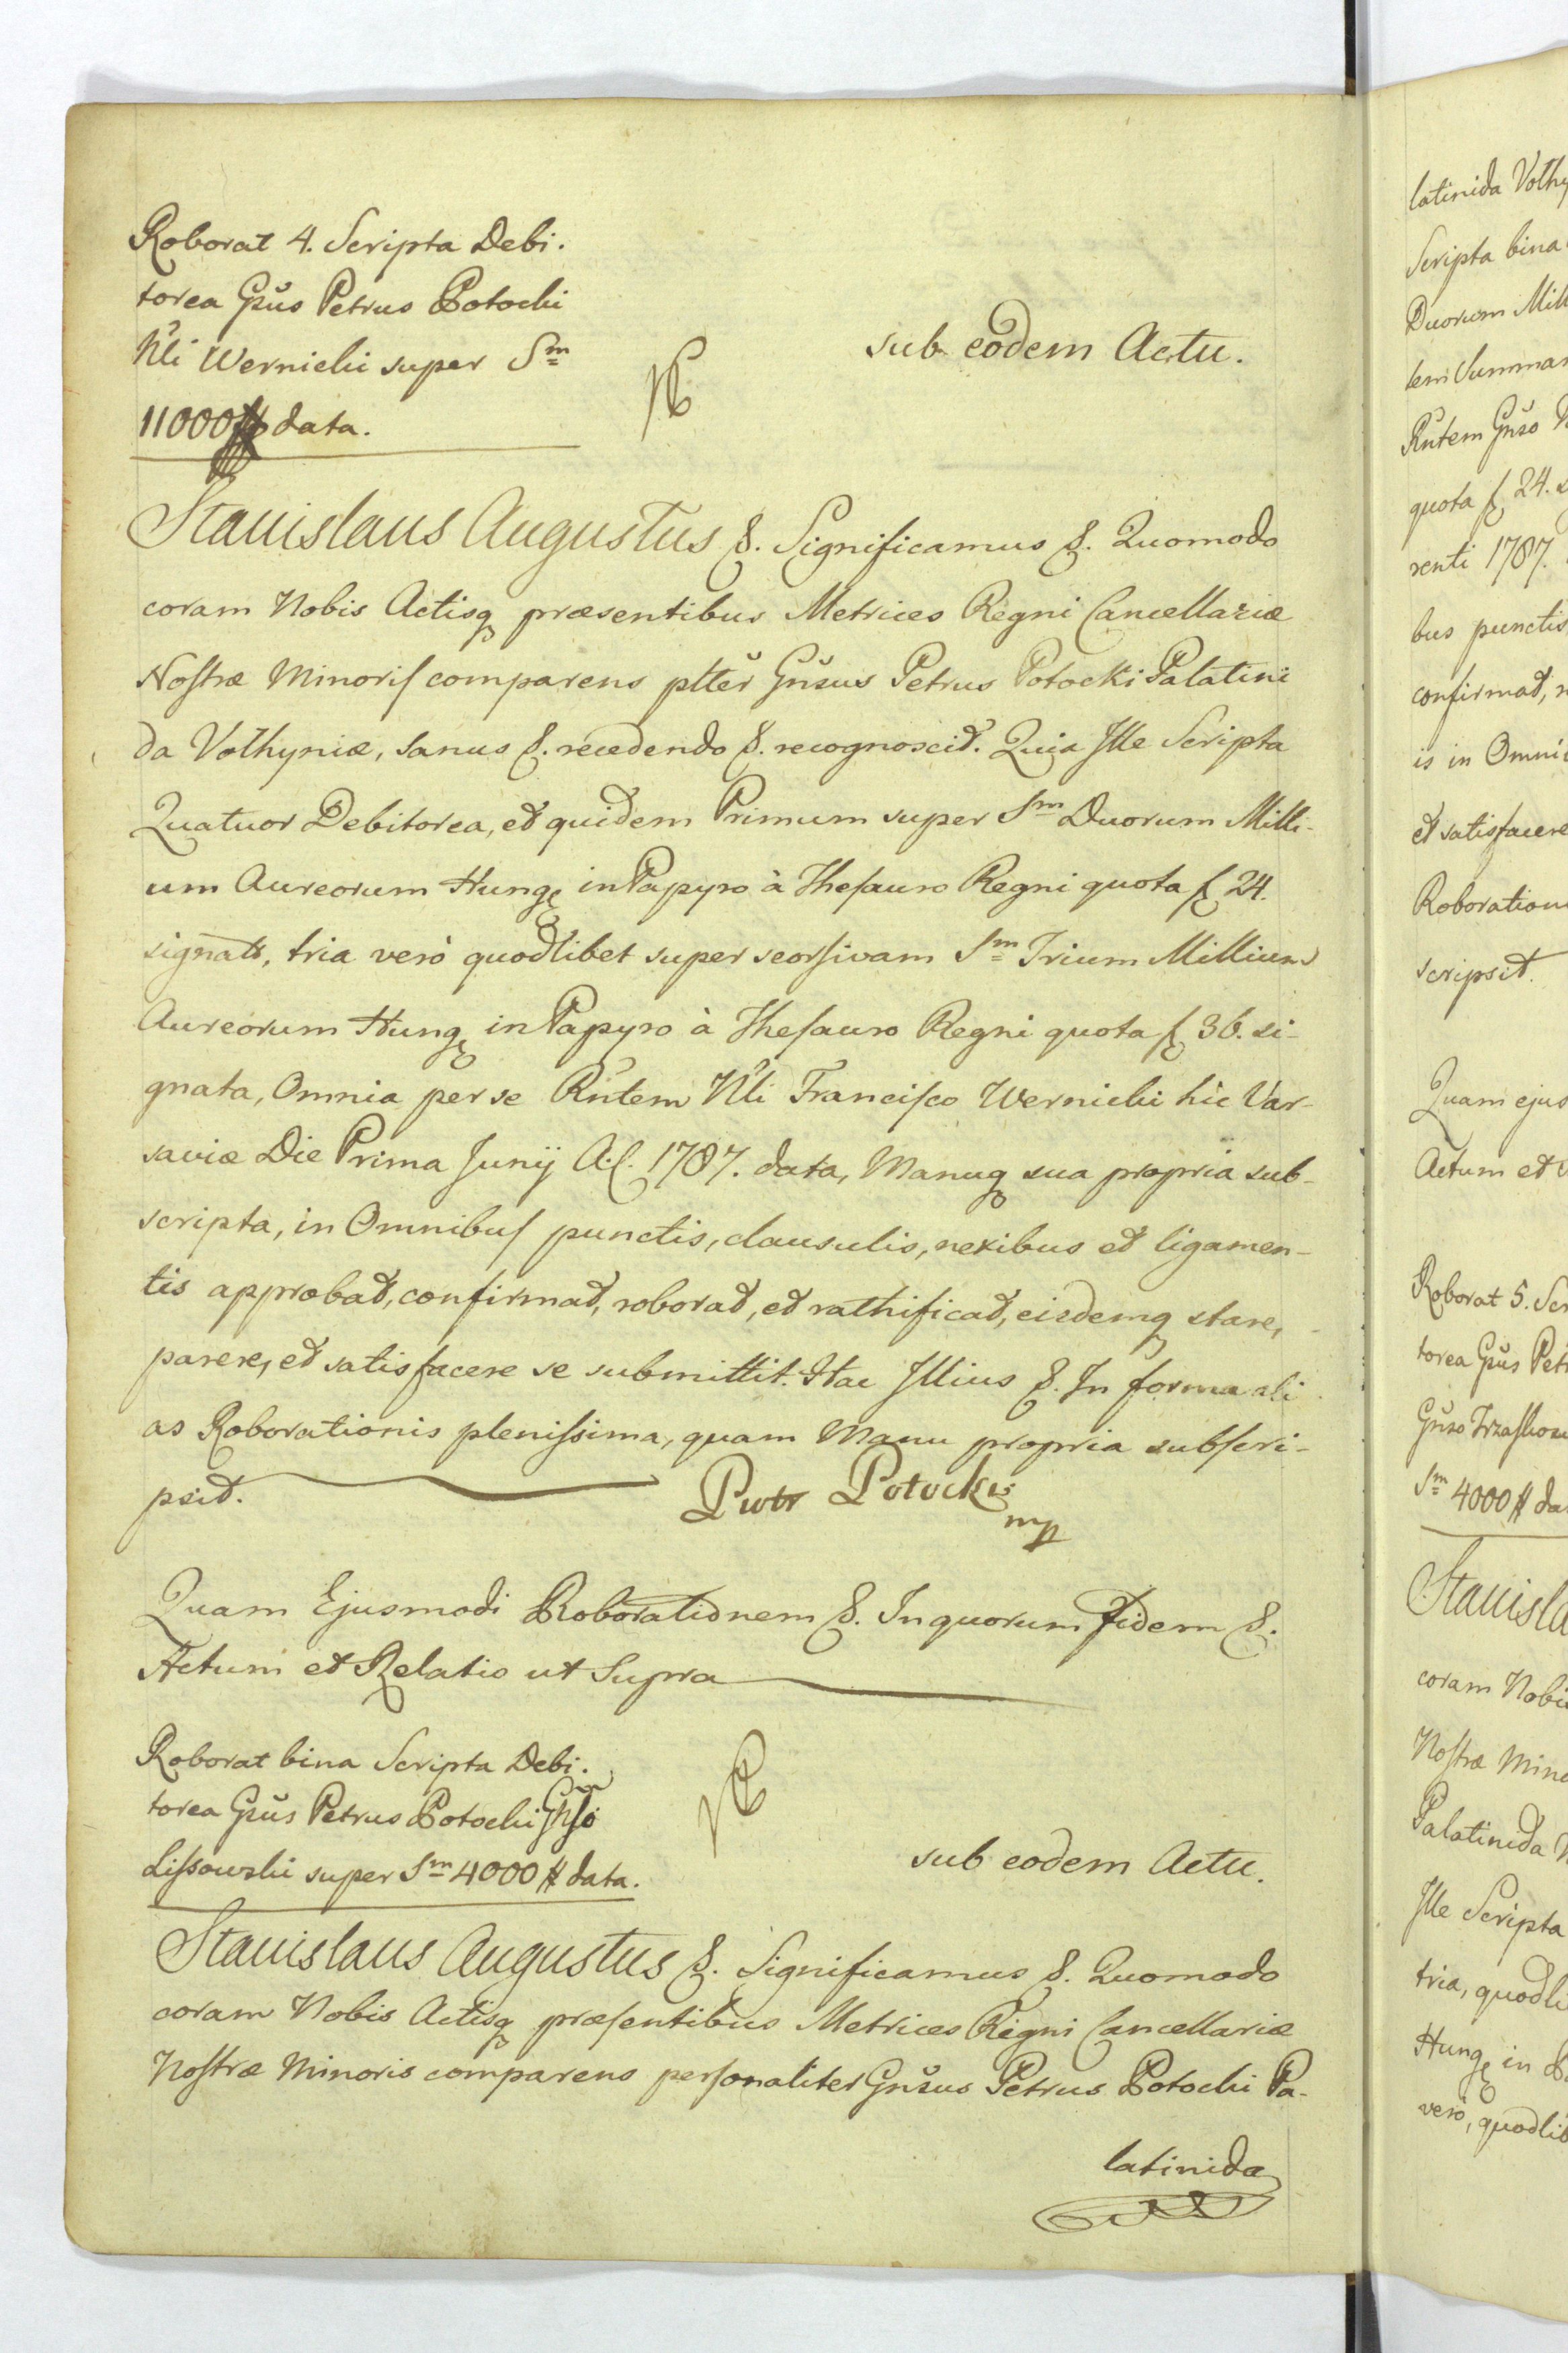 Roborat 4. Scripta Debi-
torea Gsus Petrus Potocki
Nli Wernicki super Sm
11000 # data.
sub eodem Actu.
Stanislaus Augustus &. Significamus &. Quomodo
coram Nobis Actisq præsentibus Metrices Regni Cancellariæ
Nostræ Minoris comparens plter Gnsus Petrus Potocki Palatini
da Volhyniæ, sanus &. recedendo &. recognoscit. Quia Ille Scripta
Quatuor Debitorea, et quidem Primum super Sm Duorum Milli-
um Aureorum Hung in Papyro à Thesauro Regni quota f 24.
signato, tria verò quodlibet super seorsivam Sm Trium Millium
Aureorum Hung in Papyro à Thesauro Regni quota f 36. si-
gnata, Omnia per se Rntem Nli Francisco Wernicki hic Var-
saviæ Die Prima Junij A.C. 1787. data, Manuq sua propria sub-
scripta, in Omnibus punctis, clausulis, nexibus et ligamen-
tis approbat, confirmat, roborat, et rathificat, eisdemq stare,
parere, et satisfacere se submittit. Hac Illius &. In forma ali
as Roborationis plenissima, quam Manu propria subscri-
psit.
Piotr Potocki
mp
Quam Ejusmodi Roborationem &. In quorum fidem &.
Actum et Relatio ut Supra
Roborat bina Scripta Debi-
torea Gsus Petrus Potocki Gnso
Lissowski super Sm 4000 # data.
sub eodem Actu.
Stanislaus Augustus &. Significamus &. Quomodo
coram Nobis Actisq præsentibus Metrices Regni Cancellariæ
Nostræ Minoris comparens personaliter Gnsus Petrus Potocki Pa-
latinida
latinida Volhy
Scripta bina
Duorum Mill
lem Summam
Rntem Gnso
quota f 24.
renti 1787.
bus punctis
confirmat,
is in Omni
et satisfacere
Roboration
scripsit.
Quam ejus
Actum et
Roborat 5. Scr
torea Gsus Pet
Gnso Trzaskow
Sm 4000 # da
Stanisla
coram Nobi
Nostræ Mino
Palatinida
Ille Scripta
tria, quodli
Hung in
verò, quodlib